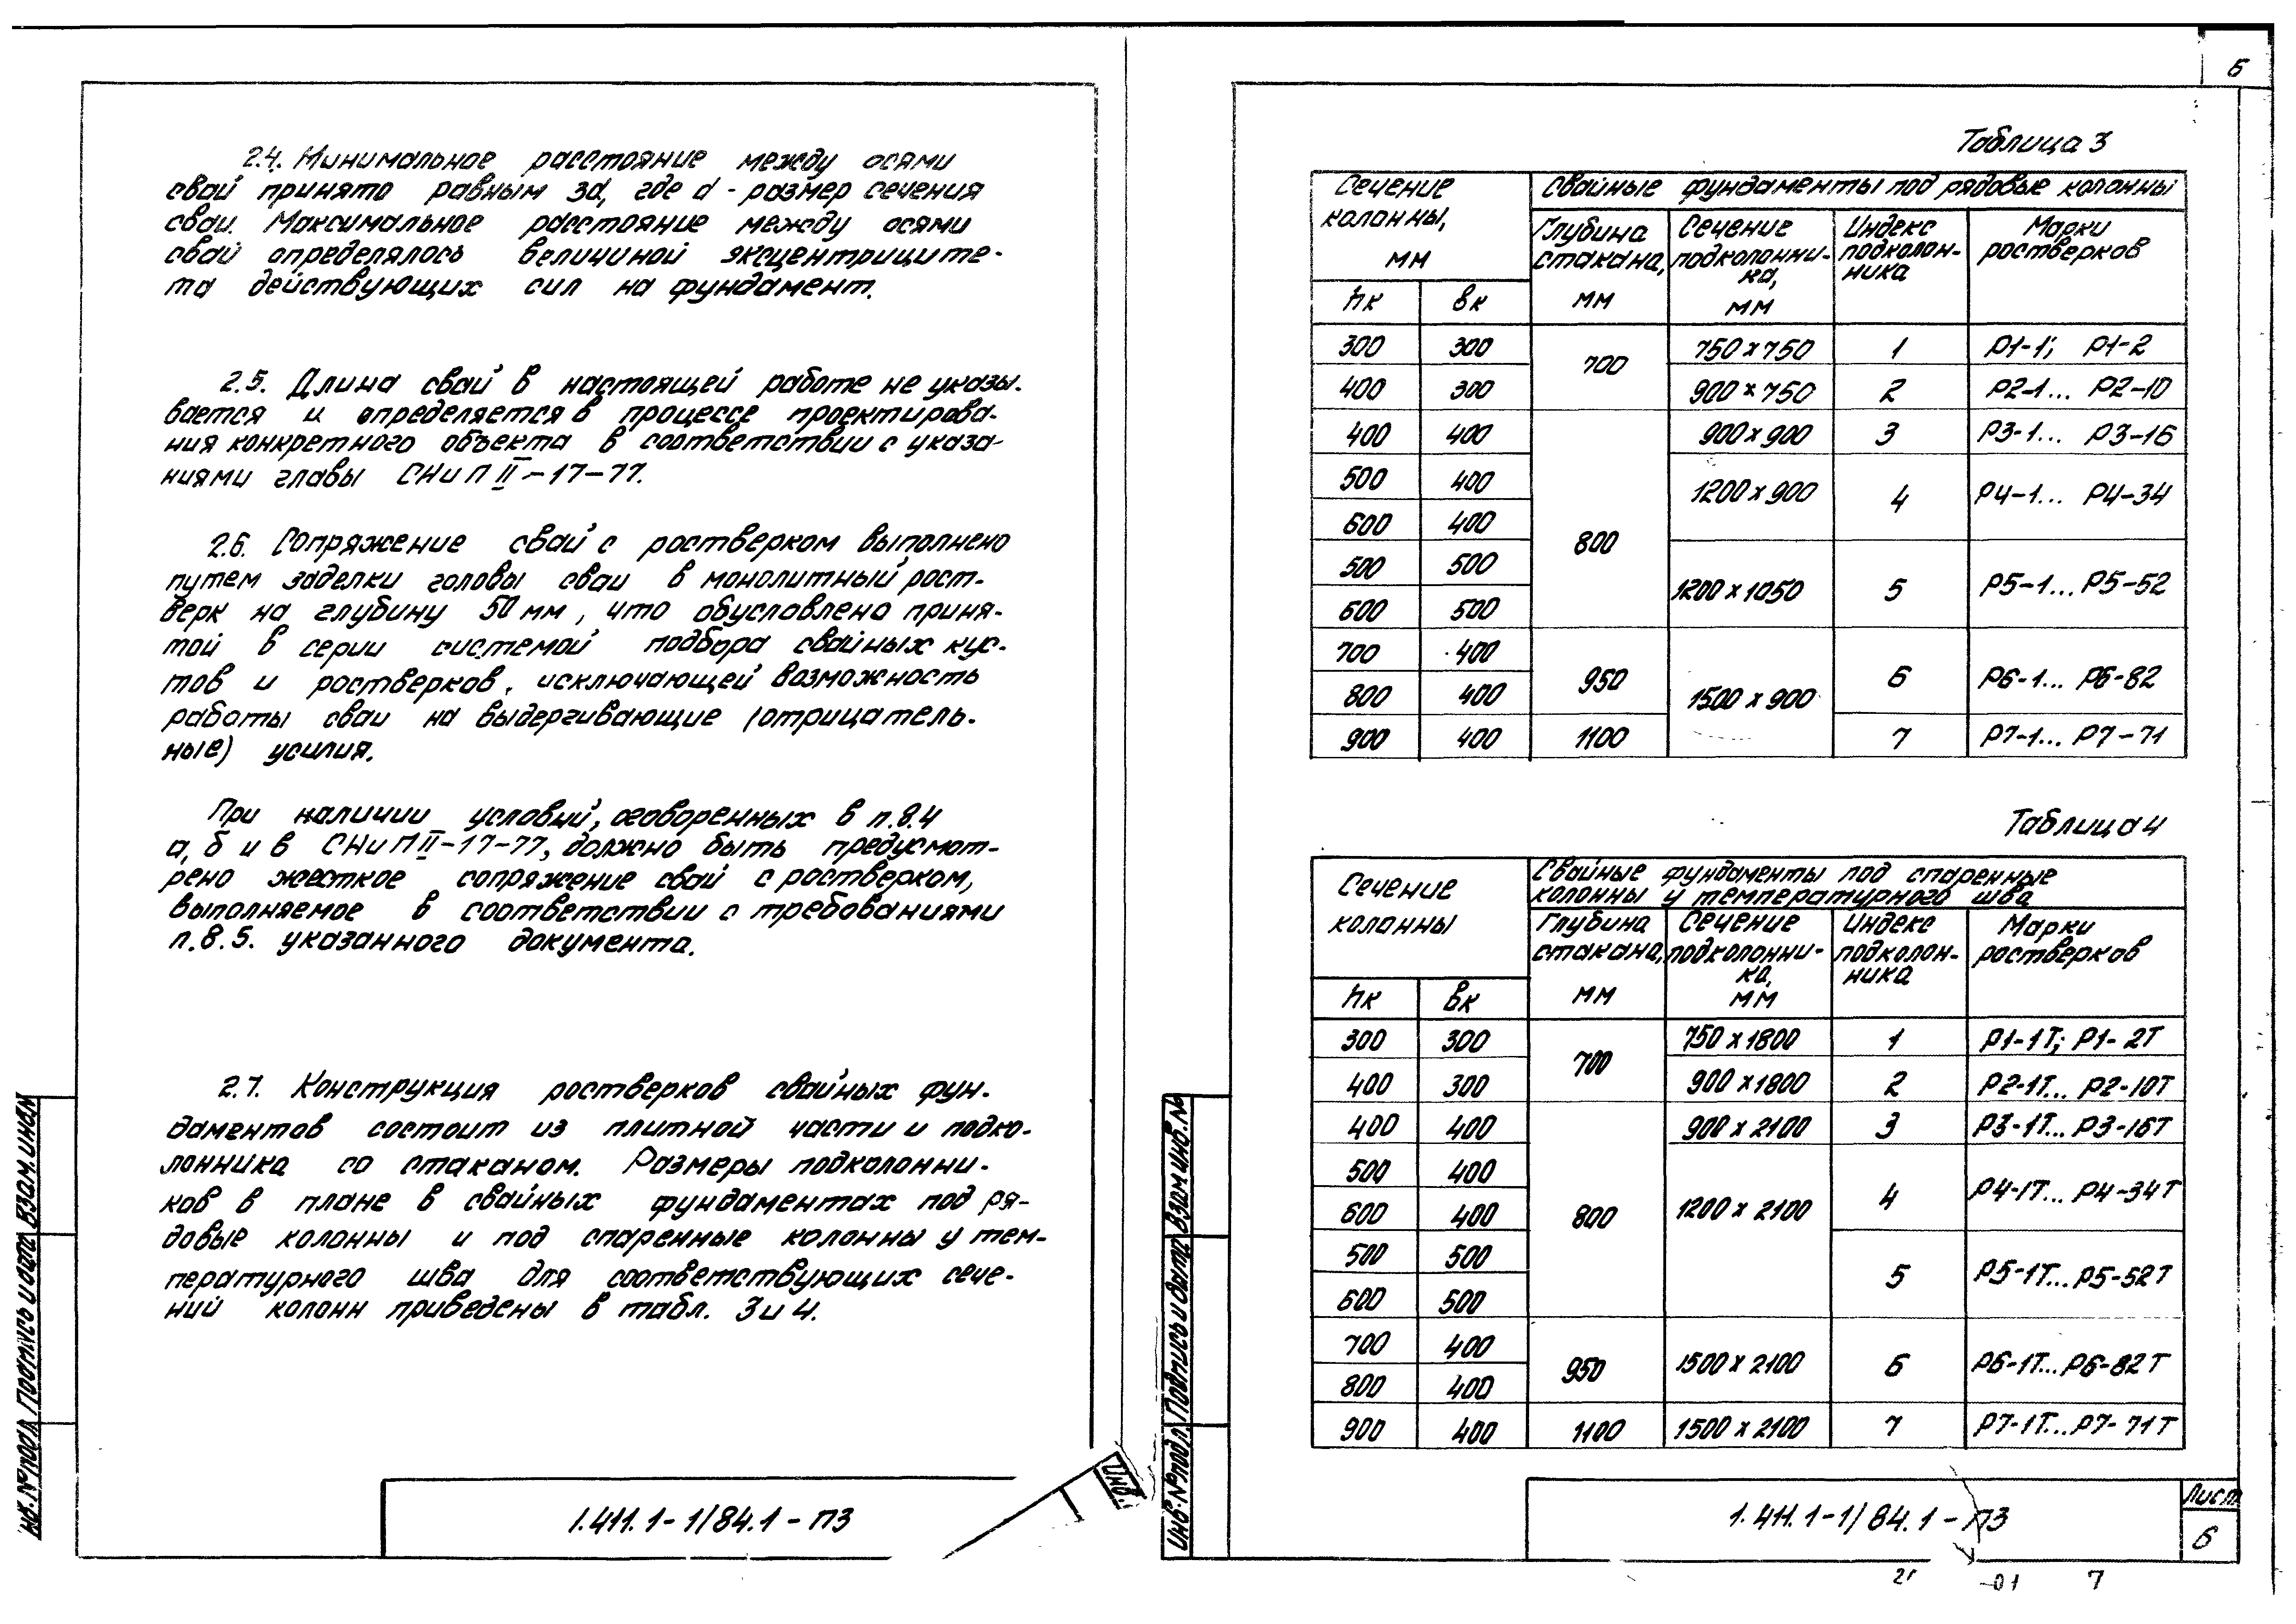 2.4. Минимальное расстояние между осями
свай принято равным 3d, где d - размер сечения
сваи. Максимальное расстояние между осями
свай определялось величиной эксцентриците-
та действующих сил на фундамент.
2.5. Длина свай в настоящей работе не указы-
вается и определяется в процессе проектирова-
ния конкретного объекта в соответствии с указа-
ниями главы СНиП II-17-77.
2.6. Сопряжение свай с ростверком выполнено
путем заделки головы сваи в монолитный рост-
верк на глубину 50 мм, что обусловлено приня-
той в серии системой подбора свайных кус-
тов и ростверков, исключающей возможность
работы сваи на выдергивающие (отрицатель-
ные) усилия.
При наличии условий, оговоренных в п.8.4
а, б и в СНиП II-17-77, должно быть предусмот-
рено жесткое сопряжение свай с ростверком,
выполняемое в соответствии с требованиями
п.8.5. указанного документа.
2.7. Конструкция ростверков свайных фун-
даментов состоит из плитной части и подко-
лонника со стаканом. Размеры подколонни-
ков в плане в свайных фундаментах под ря-
довые колонны и под спаренные колонны у тем-
пературного шва для соответствующих сече-
ний колонн приведены в табл. 3 и 4.
Инв. № подл. Подпись и дата Взам. инв. №
1.411.1-1/84.1-ПЗ
Инв.
6
Таблица 3
Сечение колонны, мм
Свайные фундаменты под рядовые колонны
Глубина стакана, мм
Сечение подколонни-ка, мм
Индекс подколон-ника
Марки ростверков
hк вк
300 300 700 750 x 750 1 Р1-1; Р1-2
400 300 900 x 750 2 Р2-1... Р2-10
400 400 800 900 x 900 3 Р3-1... Р3-16
500 400 1200 x 900 4 Р4-1... Р4-34
600 400
500 500 1200 x 1050 5 Р5-1... Р5-52
600 500
700 400 950 1500 x 900 6 Р6-1... Р6-82
800 400
900 400 1100 7 Р7-1... Р7-71
Таблица 4
Сечение колонны
Свайные фундаменты под спаренные
колонны у температурного шва
Глубина стакана, мм
Сечение подколонни-ка, мм
Индекс подколон-ника
Марки ростверков
hк вк
300 300 700 750 x 1800 1 Р1-1Т; Р1-2Т
400 300 900 x 1800 2 Р2-1Т... Р2-10Т
400 400 800 900 x 2100 3 Р3-1Т... Р3-16Т
500 400 1200 x 2100 4 Р4-1Т... Р4-34Т
600 400
500 500 5 Р5-1Т... Р5-52Т
600 500
700 400 950 1500 x 2100 6 Р6-1Т... Р6-82Т
800 400
900 400 1100 1500 x 2100 7 Р7-1Т... Р7-71Т
Инв. № подл. Подпись и дата Взам. инв. №
1.411.1-1/84.1-ПЗ
Лист
6
-01 7